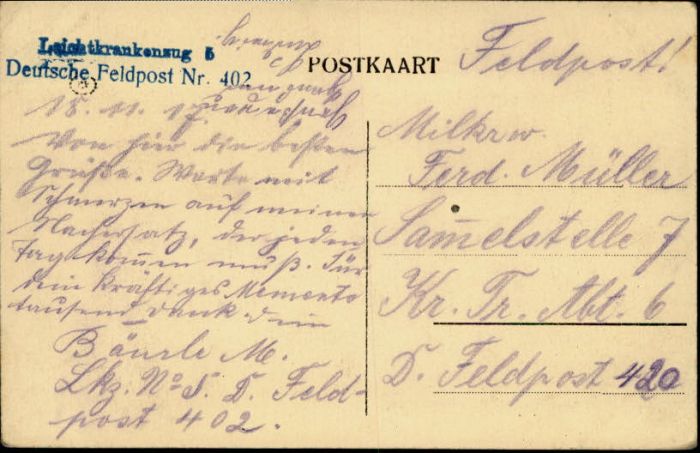 Leichtkrankenzug 5
Deutsche Feldpost Nr. 402
POSTKAART
Feldpost!
18. 11. 17.
Von hier die besten
Grüße. Warte mit
Schmerzen auf meinen
Nachersatz, der jeden
Tag kommen muß. Für
dein kräftiges Memento
tausend Dank dein
Bäurle M.
Lkz. No 5. D. Feld-
post 402.
Milkrw.
Ferd. Müller
Sam̅elstelle 7
Kr. Tr. Abt. 6
D. Feldpost 420